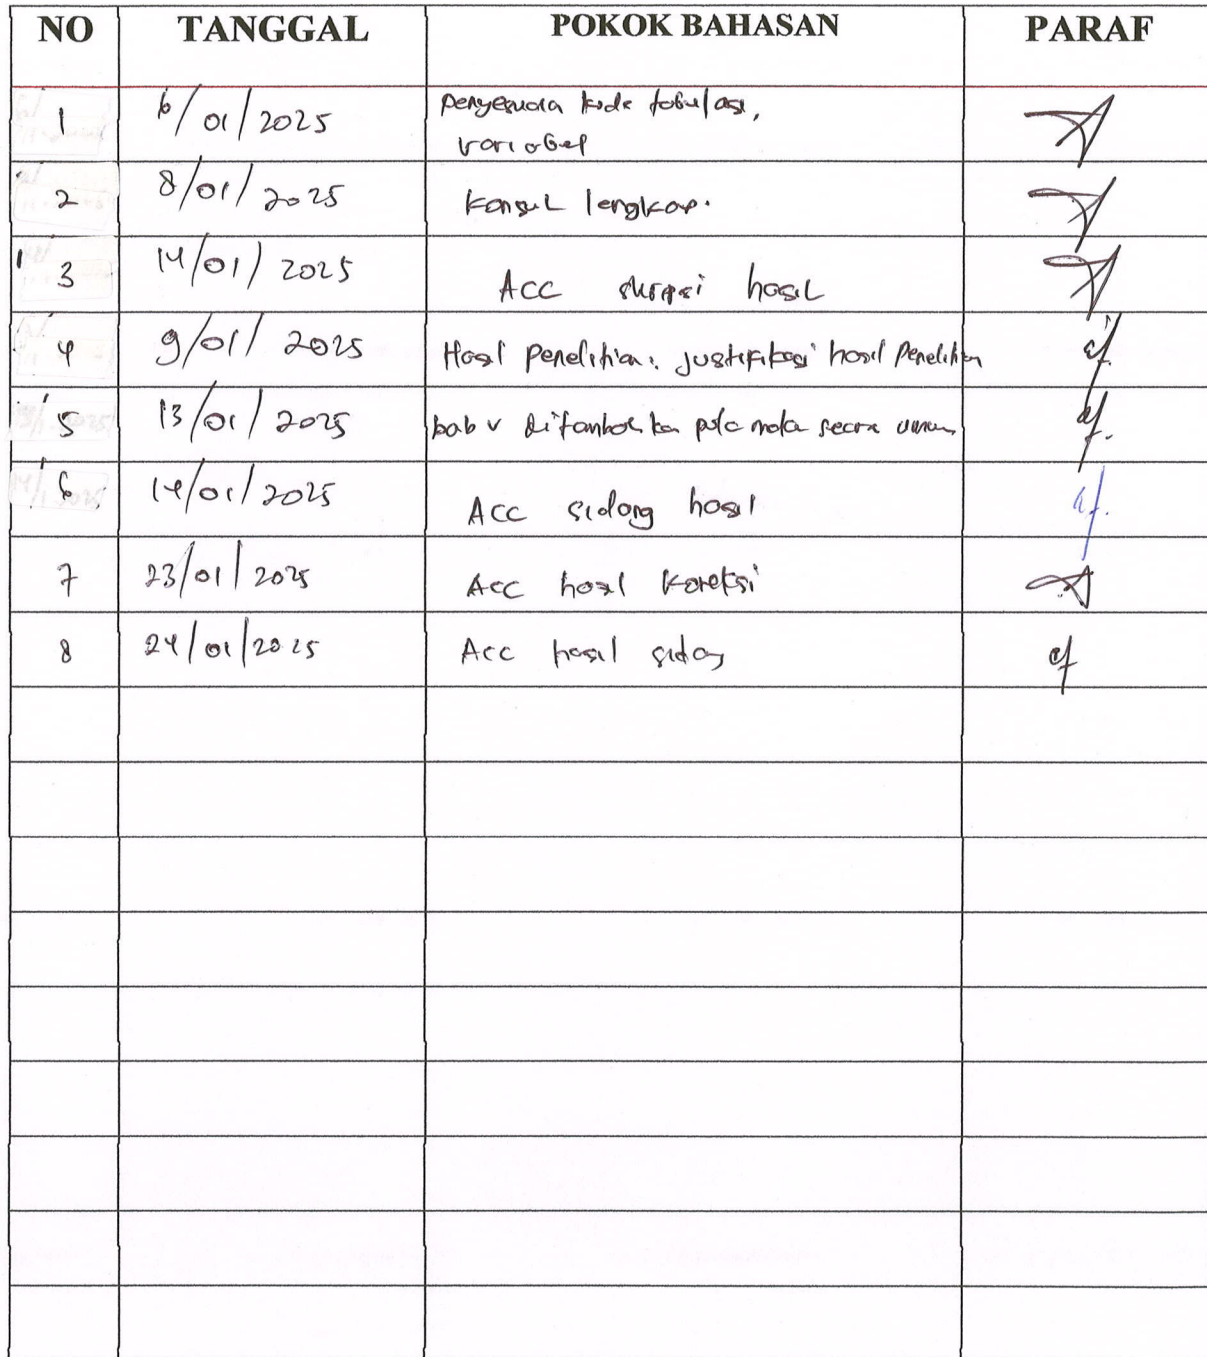 NO TANGGAL POKOK BAHASAN PARAF
1 6/01/2025 penyesuaia kode tabulasi,
variabel
2 8/01/2025 Konsul lengkap.
3 14/01/2025 ACC skripsi hasil
4 9/01/2025 Hasil penelitian: justifikasi hasil penelitian
5 13/01/2025 bab v ditambahkan secara umum
6 14/01/2025 ACC sidang hasil
7 23/01/2025 Acc hasil koreksi
8 24/01/2025 Acc hasil sidang